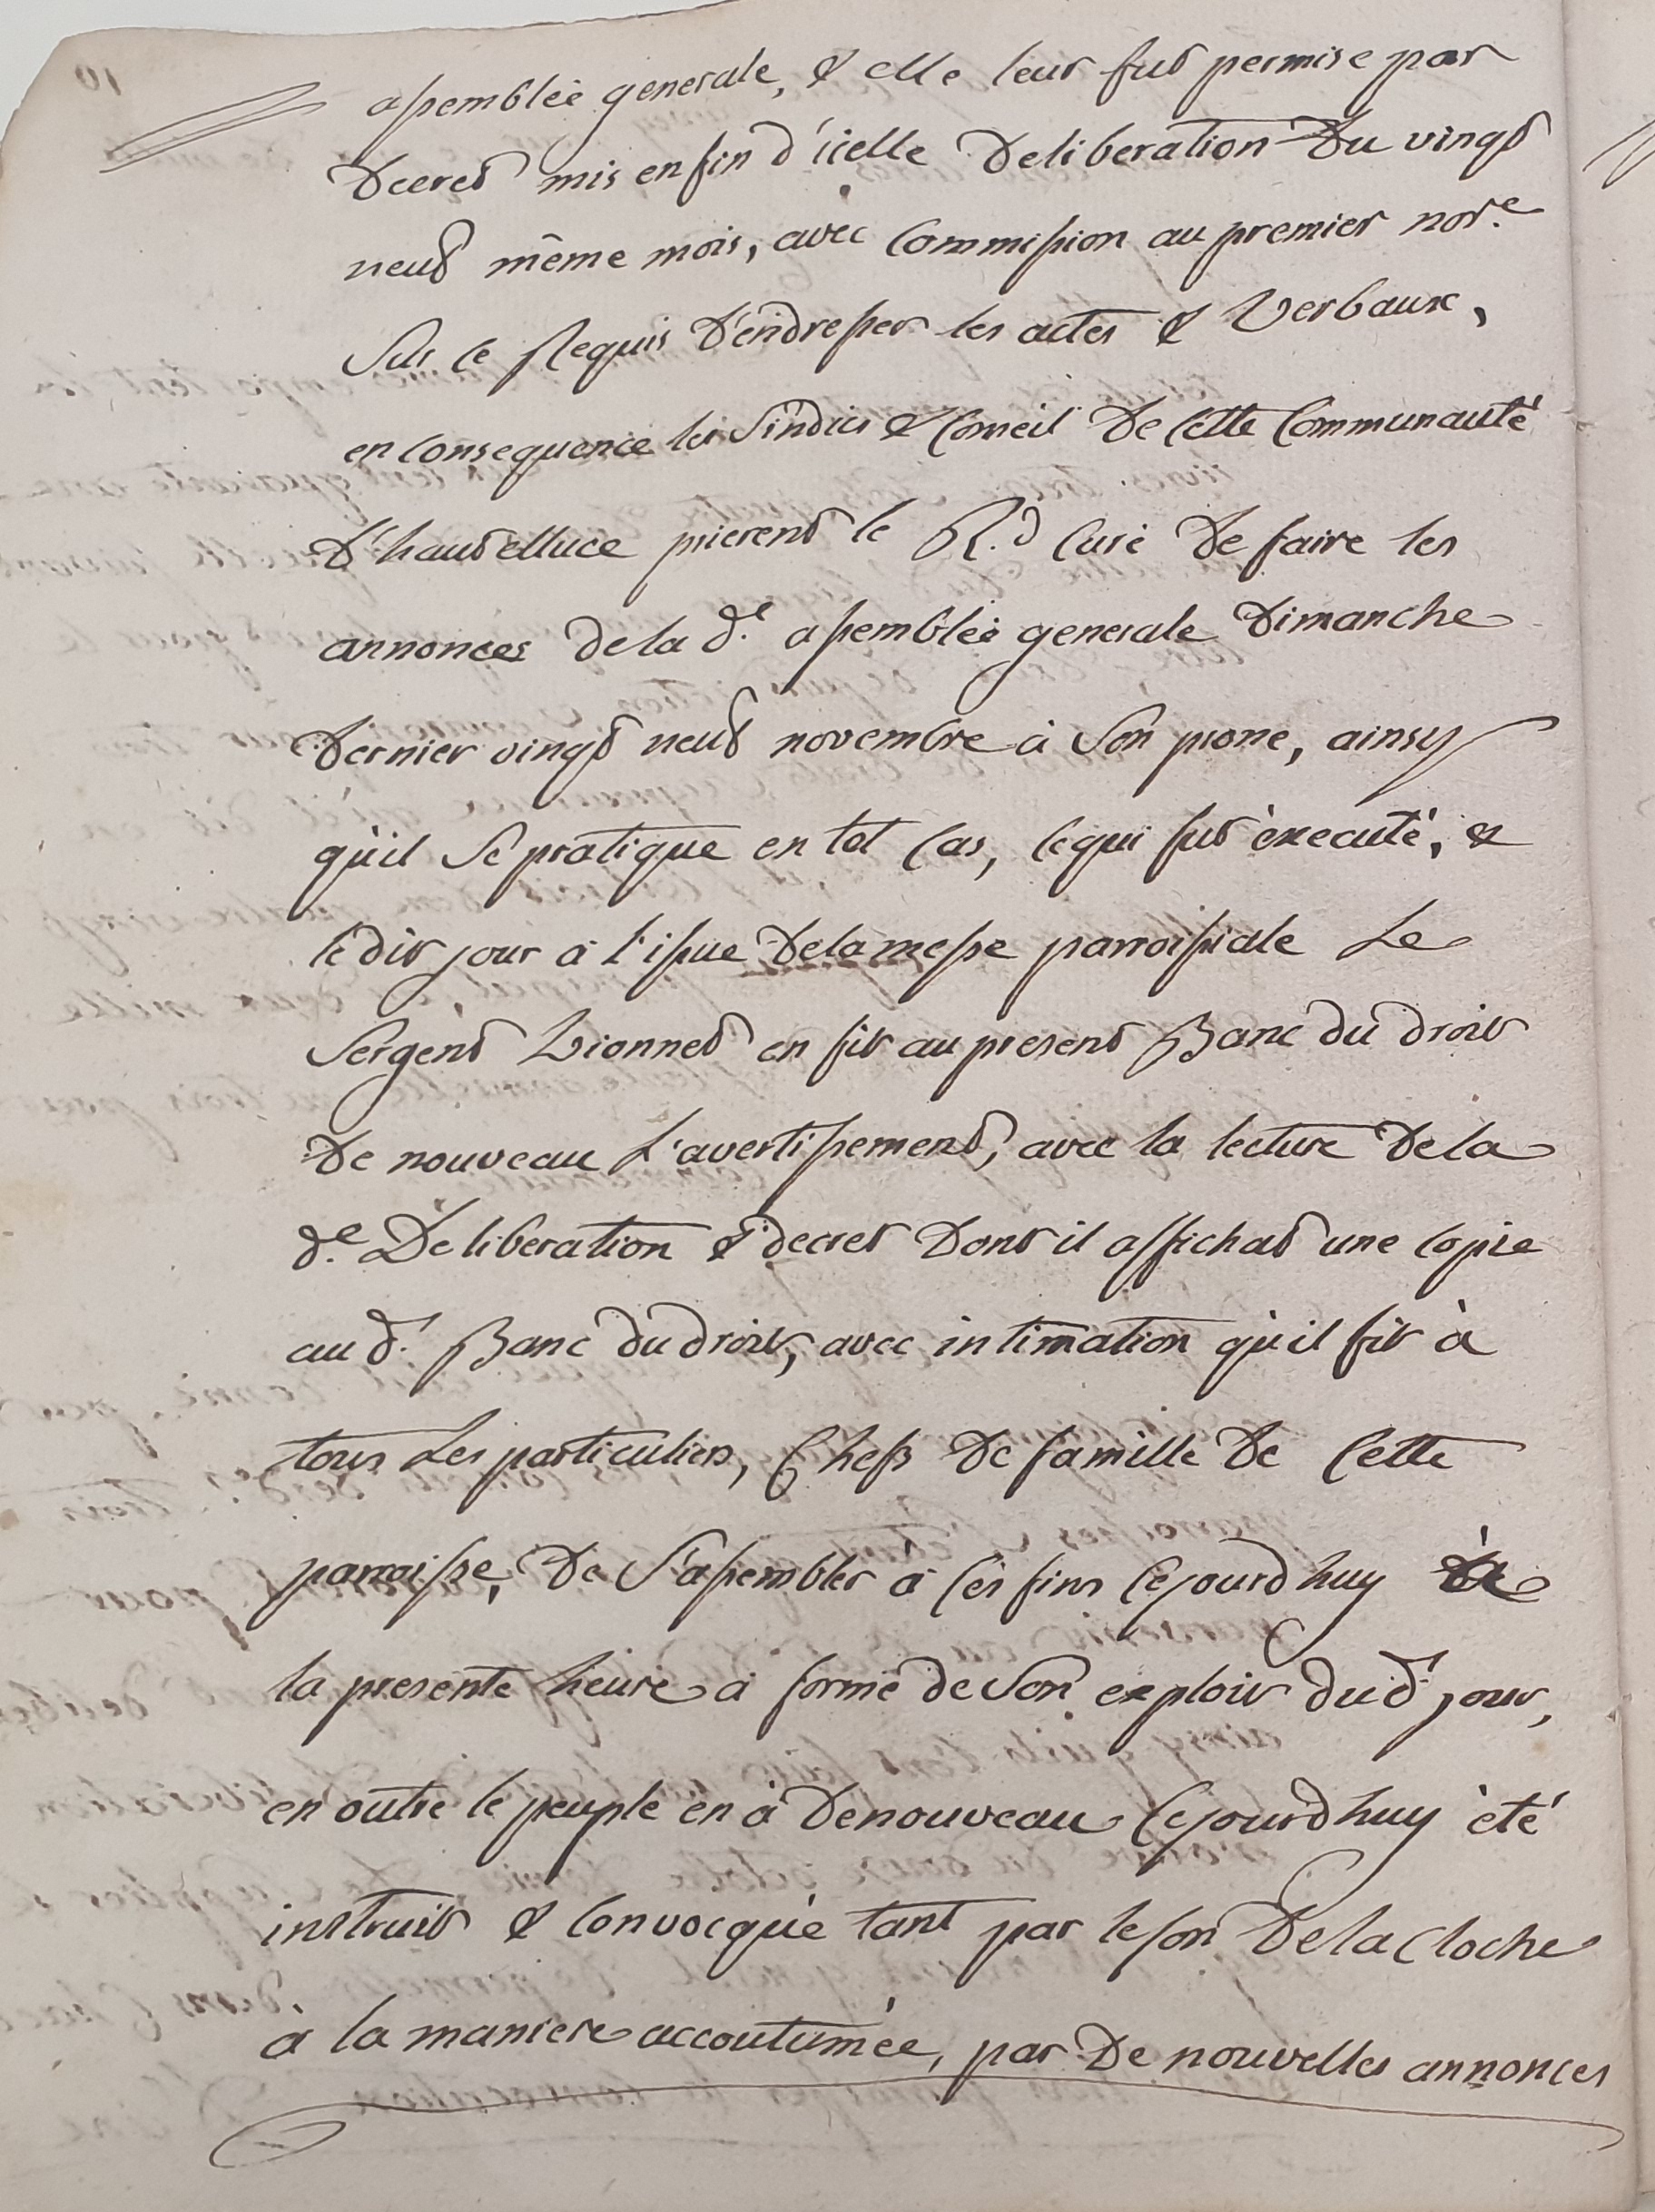 assemblée generale, & elle leur fut permise par
Decret mis en fin d'icelle Deliberation Du vingt
neuf même mois, avec Commission au premier not.e
Sur ce Requis D'endresser les actes & Verbaux,
en consequence les Sindics & Conseil De Cette Communauté
D'hautelluce prierent le R.d Curé De faire les
annonces De la d.e assemblée generale Dimanche
Dernier vingt neuf novembre à Son prone, ainsy
qu'il Se pratique en tel Cas, ce qui fut èxecuté, &
le dit jour à l'issue De la messe parroissiale Le
Sergent Vionnet en fit au present Banc du droit
De nouveau L'avertissement, avec la lecture De la
d.e Deliberation & decret Dont il affichat une Copie
au d.t Banc du droit, avec intimation qu'il fit à
tous Les particuliers, Chefs De famille De Cette
parroisse, De S'assembler à Ces fins Cejourdhuy à
la presente heure à forme de Son exploit du d.t jour,
en outre le peuple en à De nouveau Cejourdhuy èté
instruit & Convocqué tant par le son De la Cloche
à la maniere accoutumée, par De nouvelles annonces